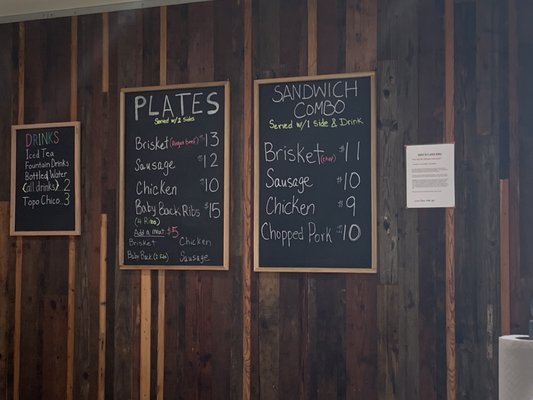 DRINKS
Iced Tea
Fountain Drinks
Bottled Water
(all drinks) 2
Topo Chico 3
PLATES
Served w/ 2 sides
Brisket $13
Sausage $12
Chicken $10
Baby Back Ribs $15
(4 Ribs)
Add a meat $5
Brisket Chicken
Baby Back (2 Rib) Sausage
SANDWICH
COMBO
Served w/ 1 Side & Drink
Brisket $11
Sausage $10
Chicken $9
Chopped Pork $10